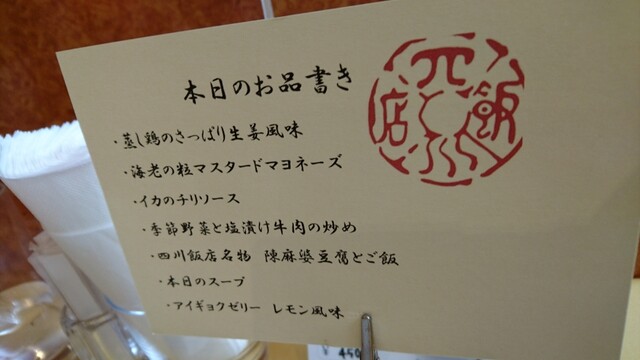 本日のお品書き
・蒸し鶏のさっぱり生姜風味
・海老の粒マスタードマヨネーズ
・イカのチリソース
・季節野菜と塩漬け牛肉の炒め
・四川飯店名物 陳麻婆豆腐とご飯
・本日のスープ
・アイギョクゼリー レモン風味
飯
店